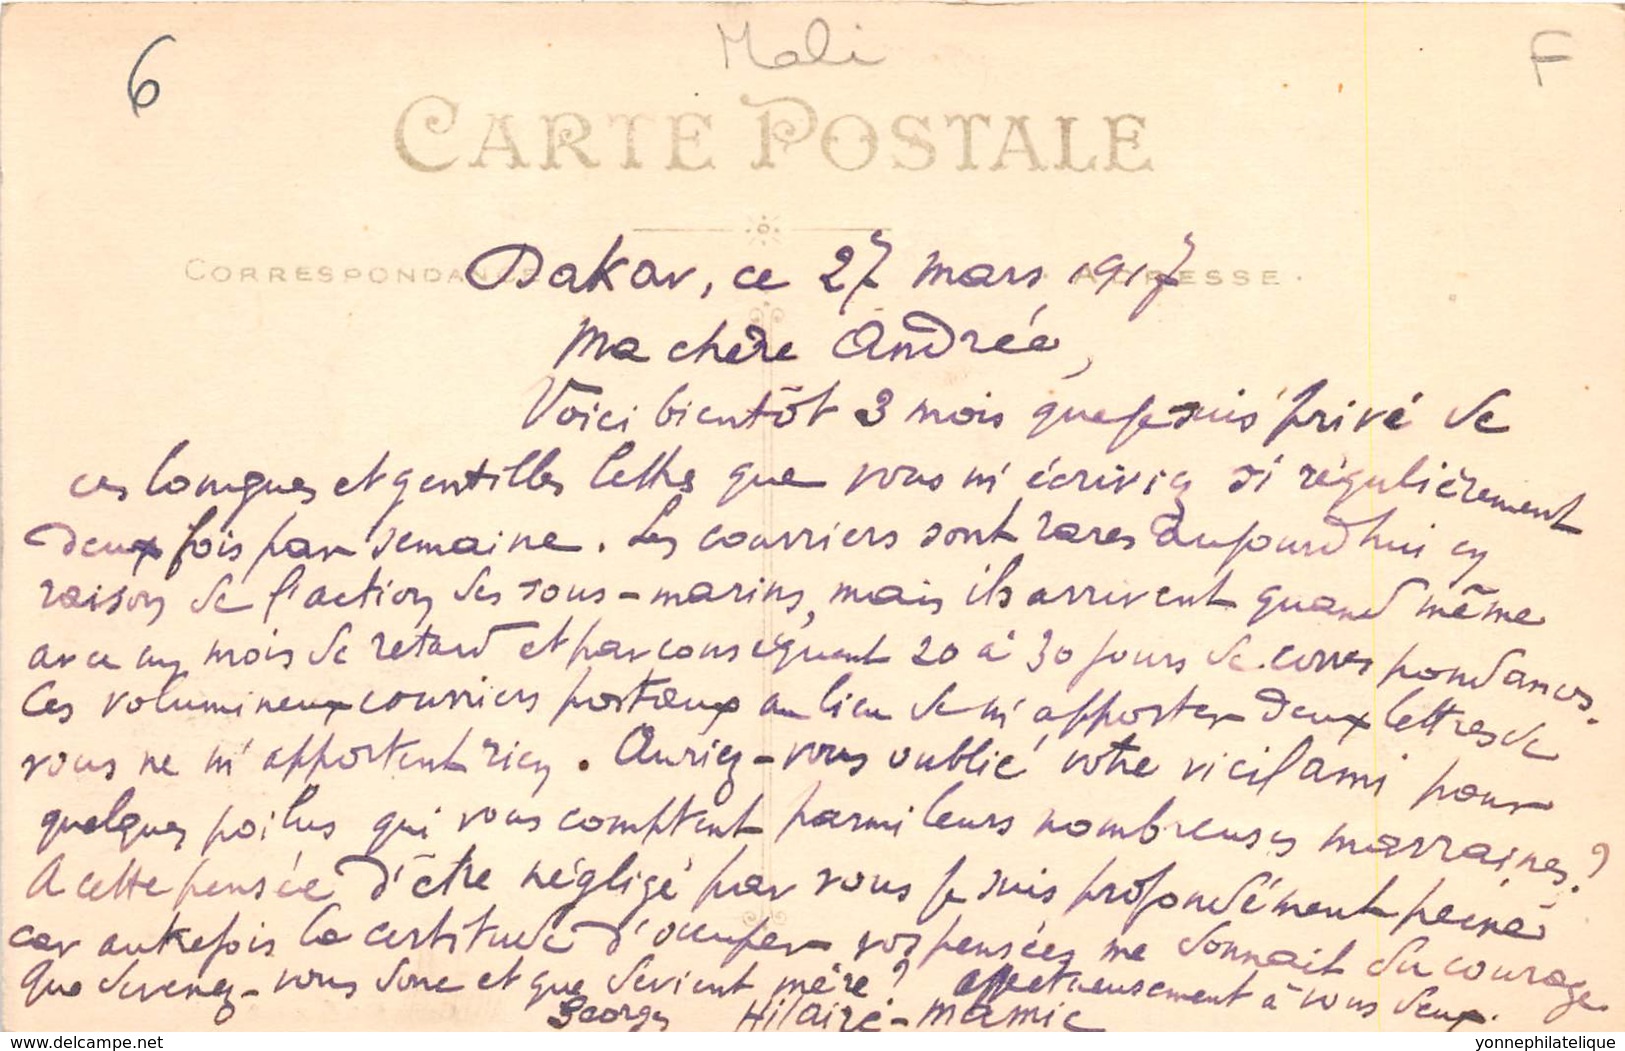 6
Mali
F
CARTE POSTALE
CORRESPONDANCE
ADRESSE
Dakar, ce 27 mars 1917
Ma chère Andrée,
Voici bientôt 3 mois que je suis privé de
ces longues et gentilles lettres que vous m'écriviez si régulièrement
deux fois par semaine. Les courriers sont rares aujourd'hui en
raison de l'action des sous-marins, mais ils arrivent quand même
avec un mois de retard et par conséquent 20 à 30 jours de correspondances.
Ces volumineux courriers postaux au lieu de m'apporter deux lettres de
vous ne m'apportent rien. Auriez-vous oublié votre vieil ami pour
quelques poilus qui vous comptent parmi leurs nombreuses marraines?
A cette pensée d'être négligé par vous je suis profondément peiné
car autrefois la certitude d'occuper vos pensées me donnait du courage
Que devenez-vous donc et que devient mère? affectueusement à vous deux.
Georges Hilaire-Mamie
delcampe.net
yonnephilatelique